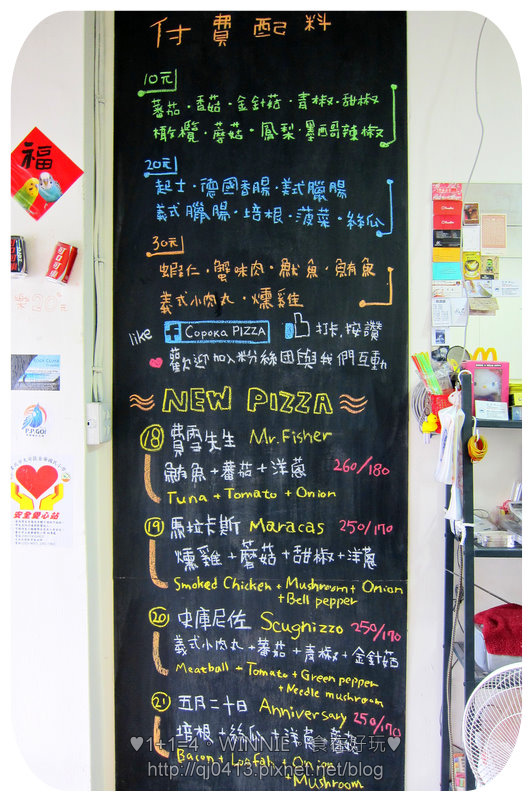 付費配料
10元
蕃茄・香菇・金針菇・青椒・甜椒
橄欖・蘑菇・鳳梨・墨西哥辣椒
20元
起士・德國香腸・美式臘腸
義式臘腸・培根・菠菜・絲瓜
30元
蝦仁・蟹味肉・魷魚・鮪魚
義式小肉丸・燻雞
like f Copoka PIZZA 打卡.按讚
歡迎加入粉絲團與我們互動
NEW PIZZA
18 費雪先生 Mr.Fisher
鮪魚+蕃茄+洋蔥 260/180
Tuna + Tomato + Onion
19 馬拉卡斯 Maracas 250/170
燻雞+蘑菇+甜椒+洋蔥
Smoked Chicken + Mushroom + Onion
+ Bell pepper
20 史庫尼佐 Scugnizzo 250/170
義式小肉丸+蕃茄+青椒+金針菇
Meatball + Tomato + Green pepper
+ Needle mushroom
21 五月二十日 Anniversary 250/170
培根+絲瓜+洋蔥+蘑菇
Bacon + Loofah + Onion
+ Mushroom
福
可口可樂
P.P.GO!
安全愛心站
http://qj0413.pixnet.net/blog